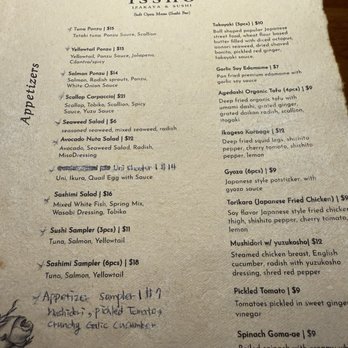 ISSHO
IZAKAYA & SUSHI
Appetizers
Tuna Ponzu | $15
Tataki tuna, Ponzu Sauce, Scallion
Yellowtail Ponzu | $15
Yellowtail, Ponzu Sauce, Jalapeno,
Cilantro/spicy
Salmon Ponzu | $14
Salmon, Radish sprouts, Ponzu,
White Onion Sauce
Scallop Carpaccio | $21
Scallop, Tobiko, Scallion, Spicy
Sauce, Yuzu Sauce
Seaweed Salad | $6
seasoned seaweed, mixed seaweed, radish
Avocado Nuta Salad | $12
Avocado, Seaweed Salad, Radish,
MisoDressing
Uni shooter | $14
Uni, Ikura, Quail Egg with Sauce
Sashimi Salad | $16
Mixed White Fish, Spring Mix,
Wasabi Dressing, Tobiko
Sushi Sampler (3pcs) | $11
Tuna, Salmon, Yellowtail
Sashimi Sampler (6pcs) | $18
Tuna, Salmon, Yellowtail
Appetizer sampler | $17
Mushidori, pickled Tomato,
crunchy Garlic cucumber
Takoyaki (5pcs) | $10
Ball shaped popular Japanese
street food, wheat flour based
batter filled with diced octopus,
aonori seaweed, dried shaved
bonito, pickled red ginger,
takoyaki sauce
Garlic Soy Edamame | $7
Pan fried premium edamame
with garlic soy sauce
Agedashi Organic Tofu (4pcs) | $9
Deep fried organic tofu with
umami dashi, grated ginger,
grated daikon radish, scallion,
itogaki
Ikageso Karaage | $12
Deep fried squid legs, shishito
pepper, cherry tomato, shishito
pepper, lemon
Gyoza (6pcs) | $9
Japanese style potsticker, with
gyoza sauce
Torikara (Japanese Fried Chicken) | $9
Soy flavor Japanese style fried chicken
thigh, shishito pepper, cherry tomato,
lemon
Mushidori w/ yuzukosho| $12
Steamed chicken breast, English
cucumber, radish with yuzukosho
dressing, shred red pepper
Pickled Tomato | $9
Tomatoes pickled in sweet ginger
vinegar
Spinach Goma-ae | $9
spinach with